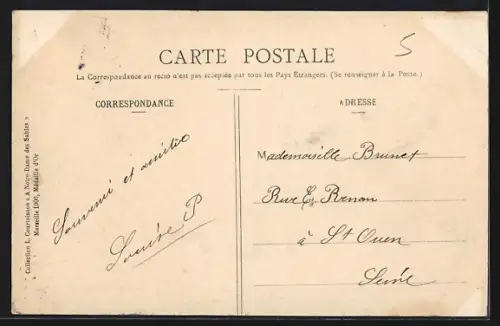 CARTE POSTALE
5
La Correspondance au recto n'est pas acceptée par tous les Pays Etrangers. (Se renseigner à la Poste.)
CORRESPONDANCE
Souvenir et amitié
Louise P
ADRESSE
Mademoiselle Brunet
Rue E. Renan
à St Ouen
Seine
Collection L. Courtinasse « A Notre-Dame des Sables »
Marseille 1906, Médaille d'Or